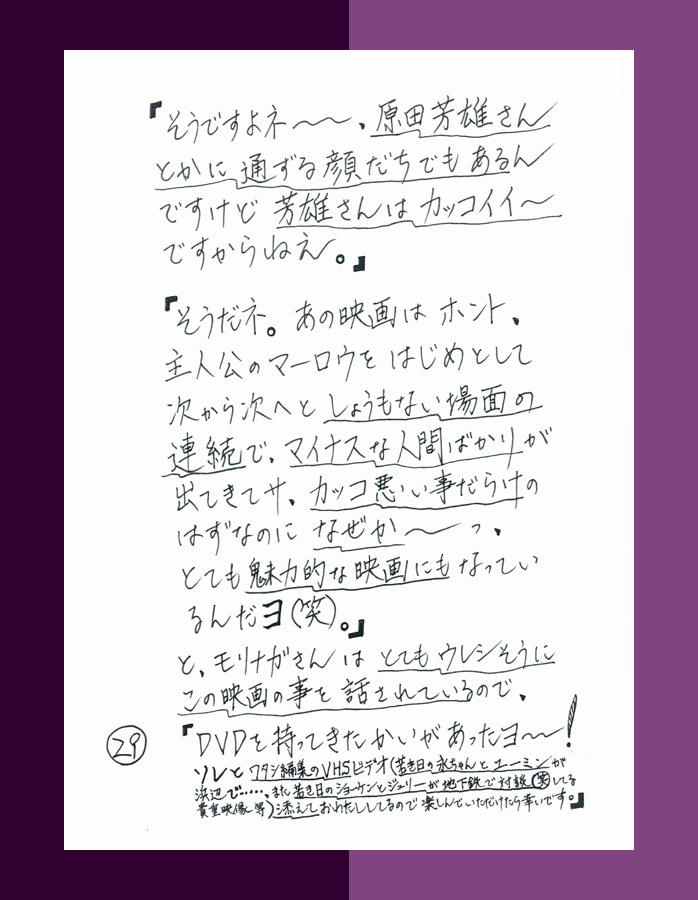 『そうですよネ〜〜、原田芳雄さん
とかに通ずる顔だちでもあるん
ですけど 芳雄さんは カッコイイ〜
ですからねえ。』
『そうだネ。あの映画は ホント、
主人公のマーロウを はじめとして
次から次へと しょうもない場面の
連続で、マイナスな人間ばかりが
出てきてサ、カッコ悪い事だらけの
はずなのに なぜか〜っ、
とても魅力的な映画にもなってい
るんだヨ(笑)。』
と、モリナガさんは とてもウレシそうに
この映画の事を 話されているので、
『DVDを持ってきたかいがあったヨ〜〜!
ソレと ワタシ編集のVHSビデオ(若き日の永ちゃんとユーミンが
浜辺で……、また若き日のショーケンとジュリーが地下鉄で対談(笑)してる
貴重映像 等)添えておわたししてるので 楽しんでいただけたら幸いです。』
29